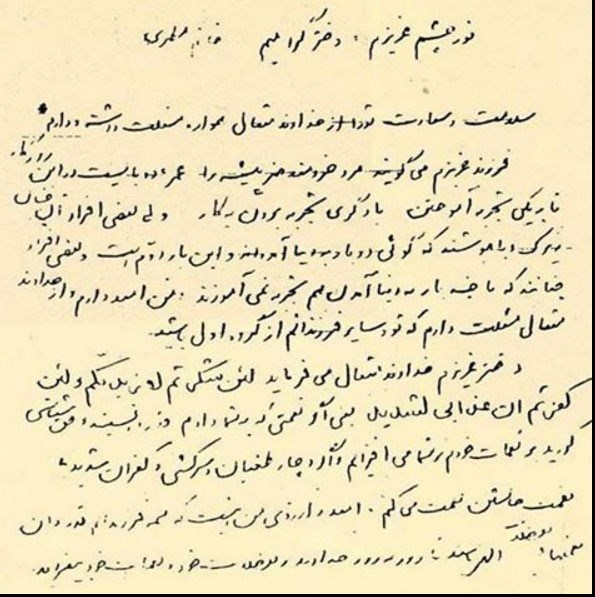 نور چشم عزیزم، دختر گرامیم خانم
سلامت و سعادت تو را از خداوند متعال همواره مسئلت داشته و دارم
فرزند عزیزم می‌گویند مرد خردمند هنر پیشه را عمر دو بایست در این روزگار
تا به یکی تجربه آموختن با دگری تجربه بردن به کار ولی بعضی افراد آن چنان
زیرک و باهوشند که گوئی دو بار به دنیا آمده‌اند و این بار دوم است و بعضی افراد
چنانند که با چند بار به دنیا آمدن هم تجربه نمی‌آموزند. من امیدوارم و از خداوند
متعال مسئلت دارم که تو و سایر فرزندانم از گروه اول باشید.
دختر عزیزم خداوند متعال می‌فرماید لئن شکرتم لازیدنکم و لئن
کفرتم ان عذابی لشدید یعنی اگر نعمتی که به شما دادم قدر دانستید و حق‌شناسی
کردید بر نعمات خودم بر شما می‌افزایم و اگر دچار طغیان و سرکشی و کفران شدید
نعمت می‌کنم. امید و آرزوی من اینست که همه فرزندانم قدردان
نعمتهای الهی باشند تا روز به روز خداوند بر خود و نعمات خود بیفزاید